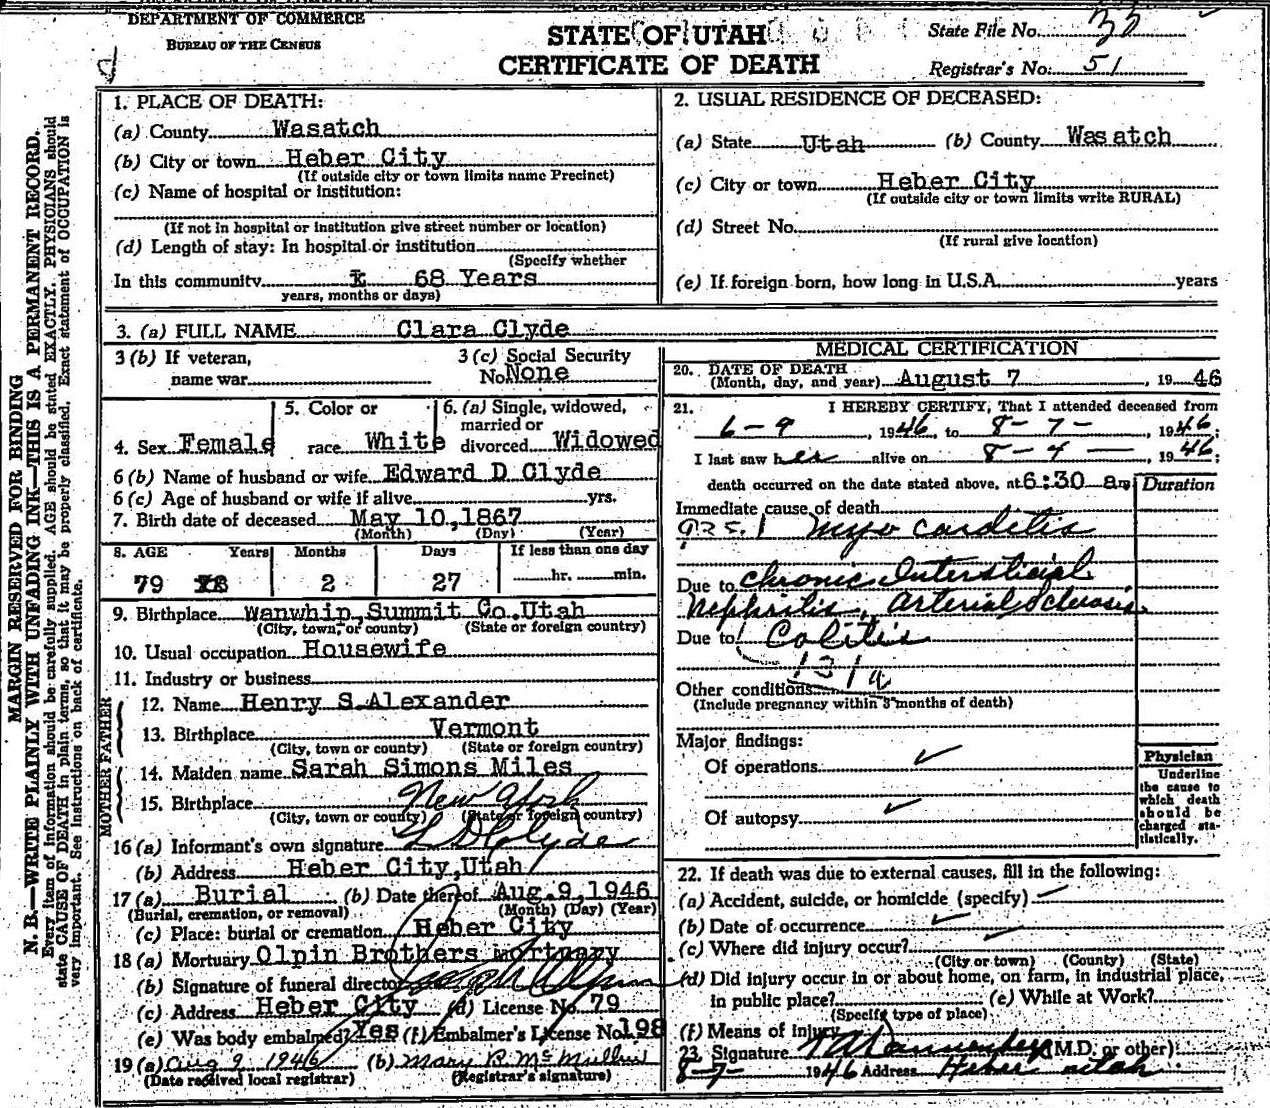 DEPARTMENT OF COMMERCE
BUREAU OF THE CENSUS
STATE OF UTAH
CERTIFICATE OF DEATH
State File No.
Registrar's No. 51
MARGIN RESERVED FOR BINDING
N. B.—WRITE PLAINLY WITH UNFADING INK—THIS IS A PERMANENT RECORD.
Every item of information should be carefully supplied. AGE should be stated EXACTLY. PHYSICIANS should
state CAUSE OF DEATH in plain terms, so that it may be properly classified. Exact statement of OCCUPATION is
very important. See instructions on back of certificate.
1. PLACE OF DEATH:
(a) County Wasatch
(b) City or town Heber City
(If outside city or town limits name Precinct)
(c) Name of hospital or institution:
(If not in hospital or institution give street number or location)
(d) Length of stay: In hospital or institution
(Specify whether
In this community 68 Years
years, months or days)
2. USUAL RESIDENCE OF DECEASED:
(a) State Utah (b) County Wasatch
(c) City or town Heber City
(If outside city or town limits write RURAL)
(d) Street No.
(If rural give location)
(e) If foreign born, how long in U.S.A. years
3. (a) FULL NAME Clara Clyde
3 (b) If veteran, 3 (c) Social Security
name war No. None
4. Sex Female 5. Color or race White 6. (a) Single, widowed, married or divorced Widowed
6 (b) Name of husband or wife Edward D Clyde
6 (c) Age of husband or wife if alive yrs.
7. Birth date of deceased May 10, 1867
(Month) (Day) (Year)
8. AGE Years Months Days If less than one day
79 2 27 hr. min.
9. Birthplace Wanwhip, Summit Co. Utah
(City, town, or county) (State or foreign country)
10. Usual occupation Housewife
11. Industry or business
FATHER
12. Name Henry S. Alexander
13. Birthplace Vermont
(City, town or county) (State or foreign country)
MOTHER
14. Maiden name Sarah Simons Miles
15. Birthplace New York
(City, town or county) (State or foreign country)
16 (a) Informant's own signature L D Clyde
(b) Address Heber City, Utah
17 (a) Burial (b) Date thereof Aug. 9, 1946
(Burial, cremation, or removal) (Month) (Day) (Year)
(c) Place: burial or cremation Heber City
18 (a) Mortuary Olpin Brothers Mortuary
(b) Signature of funeral director
(c) Address Heber City (d) License No. 79
(e) Was body embalmed? Yes (f) Embalmer's License No. 198
19 (a) Aug 9 1946 (b) Mary R. McMullin
(Date received local registrar) (Registrar's signature)
MEDICAL CERTIFICATION
20. DATE OF DEATH
(Month, day, and year) August 7, 1946
21. I HEREBY CERTIFY, That I attended deceased from
6-9, 1946, to 8-7-, 1946;
I last saw her alive on 8-4-, 1946;
death occurred on the date stated above, at 6:30 am Duration
Immediate cause of death
myo carditis
Due to Chronic Interstitial
Nephritis, Arterial Sclerosis
Due to Colitis
131a
Other conditions
(Include pregnancy within 3 months of death)
Major findings:
Of operations
Of autopsy
Physician
Underline
the cause to
which death
should be
charged sta-
tistically.
22. If death was due to external causes, fill in the following:
(a) Accident, suicide, or homicide (specify)
(b) Date of occurrence
(c) Where did injury occur?
(City or town) (County) (State)
(d) Did injury occur in or about home, on farm, in industrial place,
in public place? (e) While at Work?
(Specify type of place)
(f) Means of injury
23. Signature (M.D. or other)
8-7- 1946 Address Heber Utah